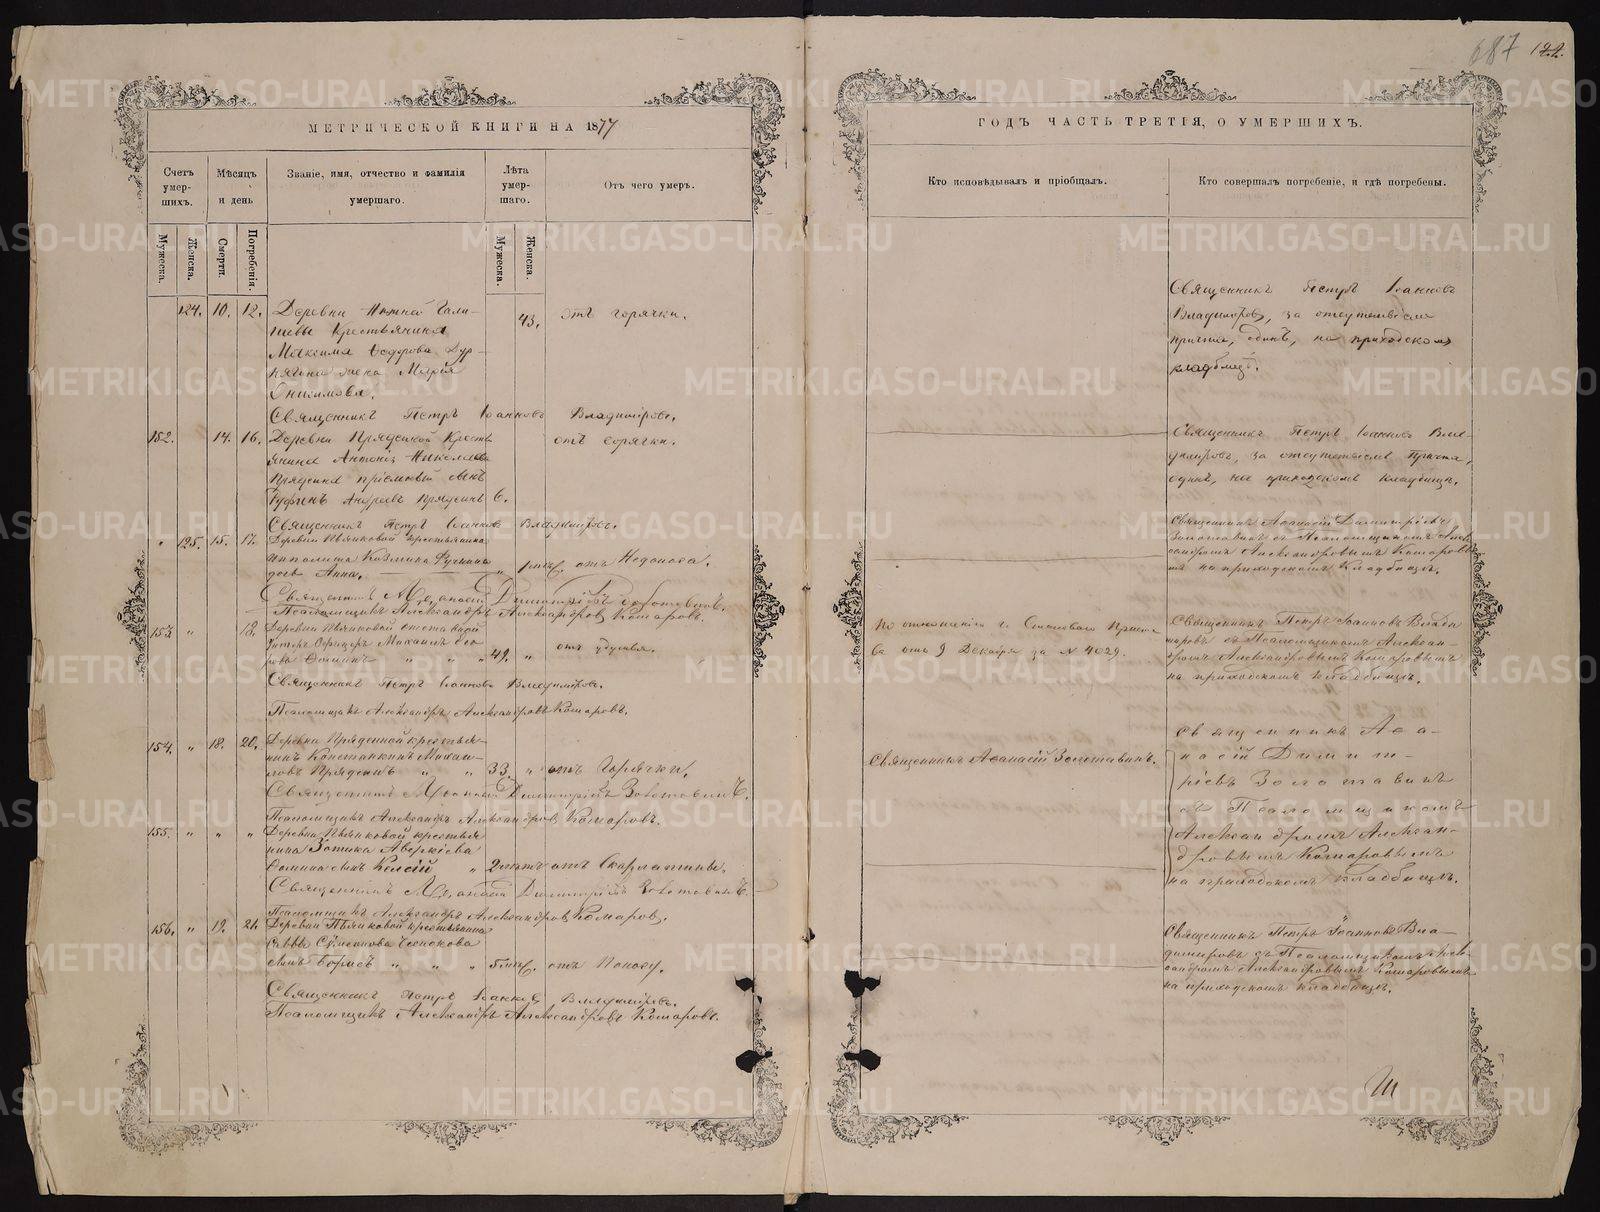 687 122.
МЕТРИЧЕСКОЙ КНИГИ НА 1877
ГОДЪ ЧАСТЬ ТРЕТІЯ, О УМЕРШИХЪ.
Счетъ умер-шихъ.
Мѣсяцъ и день
Званіе, имя, отчество и фамилія умершаго.
Лѣта умер-шаго.
Отъ чего умеръ.
Кто исповѣдывалъ и пріобщалъ.
Кто совершалъ погребеніе, и гдѣ погребены.
Мужеска.
Женска.
Смерти.
Погребенія.
Мужеска.
Женска.
124. 10. 12. Деревни Нижней Гали-
шевы крестьянина
Максима Ѳедорова
жена Марія
Онисимова.
43. отъ горячки.
Священникъ Петръ Іоанновъ
Владиміровъ, за отсутствіемъ
причта, одинъ, на приходскомъ
кладбищѣ.
Священникъ Петръ Іоанновъ Владиміровъ.
152. 14. 16. Деревни Прядеиной кресть
янина Антонія Николаева
Прядеина пріемный сынъ
Андреевъ Прядеинъ 6.
отъ горячки.
Священникъ Петръ Іоанновъ Вла-
диміровъ, за отсутствіемъ причта,
одинъ, на приходскомъ кладбищѣ.
Священникъ Петръ Іоанновъ Владиміровъ.
„ 125. 15. 17. Деревни Пьянковой крестьянина
Ипполита Козмина
дочь Анна.
„ отъ Недоноса.
Священникъ Аѳанасій Димитріевъ
Золотавинъ съ Псаломщикомъ Алек-
сандромъ Александровымъ Комаровы
мъ на приходскомъ кладбищѣ.
Священникъ Аѳанасій Димитріевъ Золотавинъ.
Псаломщикъ Александръ Александровъ Комаровъ.
153. „ 18. Деревни Пьянковой отставной
Унтеръ Офицеръ Михаилъ
Ѳоминъ „ „ „ 49. „
отъ удушья.
По отношенію г. Становаго Приста
ва отъ 9 Декабря за № 4029.
Священникъ Петръ Іоанновъ Влади
міровъ съ Псаломщикомъ Алексан-
дромъ Александровымъ Комаровымъ
на приходскомъ кладбищѣ.
Священникъ Петръ Іоанновъ Владиміровъ.
Псаломщикъ Александръ Александровъ Комаровъ.
154. „ 18. 20. Деревни Прядеиной крестья-
нинъ Константинъ Михаи-
ловъ Прядеинъ „ „ 33. „ отъ Горячки.
Священникъ Аѳанасій Золотавинъ.
Священникъ Аѳа-
насій Димит-
ріевъ Золотавинъ
съ Псаломщикомъ
Александромъ Алексан-
дровымъ Комаровымъ
на приходскомъ кладбищѣ.
Священникъ Аѳанасій Димитріевъ Золотавинъ.
Псаломщикъ Александръ Александровъ Комаровъ.
155. „ „ „ Деревни Пьянковой крестья
нина Зотика Аверкіева
Ѳомина сынъ „ отъ Скарлатины.
Священникъ Аѳанасій Димитріевъ Золотавинъ.
Псаломщикъ Александръ Александровъ Комаровъ.
156. „ 19. 21. Деревни Пьянковой крестьянина
Саввы Симеонова
сынъ Борисъ „ „ „ отъ Поносу.
Священникъ Петръ Іоанновъ Вла-
диміровъ съ Псаломщикомъ Алек-
сандромъ Александровымъ Комаровымъ
на приходскомъ кладбищѣ.
Священникъ Петръ Іоанновъ Владиміровъ.
Псаломщикъ Александръ Александровъ Комаровъ.
METRIKI.GASO-URAL.RU